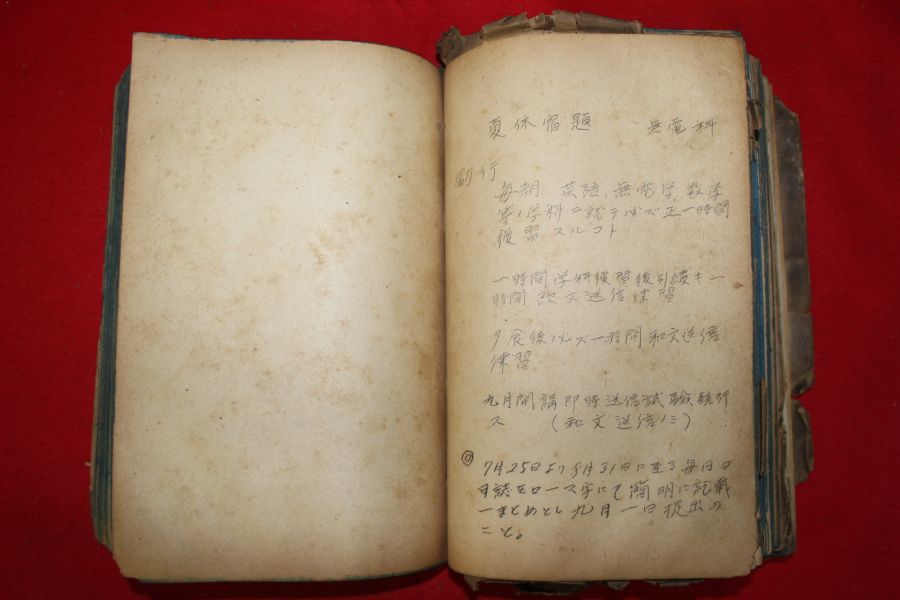 夏休宿題　無電科
励行
毎朝 英語、無電学、数学
等ノ学科ニ就テ必ズ正一時間
復習スルコト
一時間学科復習後引続キ一
時間欧文送信練習
夕食後必ズ一時間和文送信
練習
九月開講即時送信試験執行
ス　(和文送信ノミ)
◎ 7月25日より8月31日に至る毎日の
日誌をローマ字にて簡明に記載
一まとめとし九月一日提出の
こと。